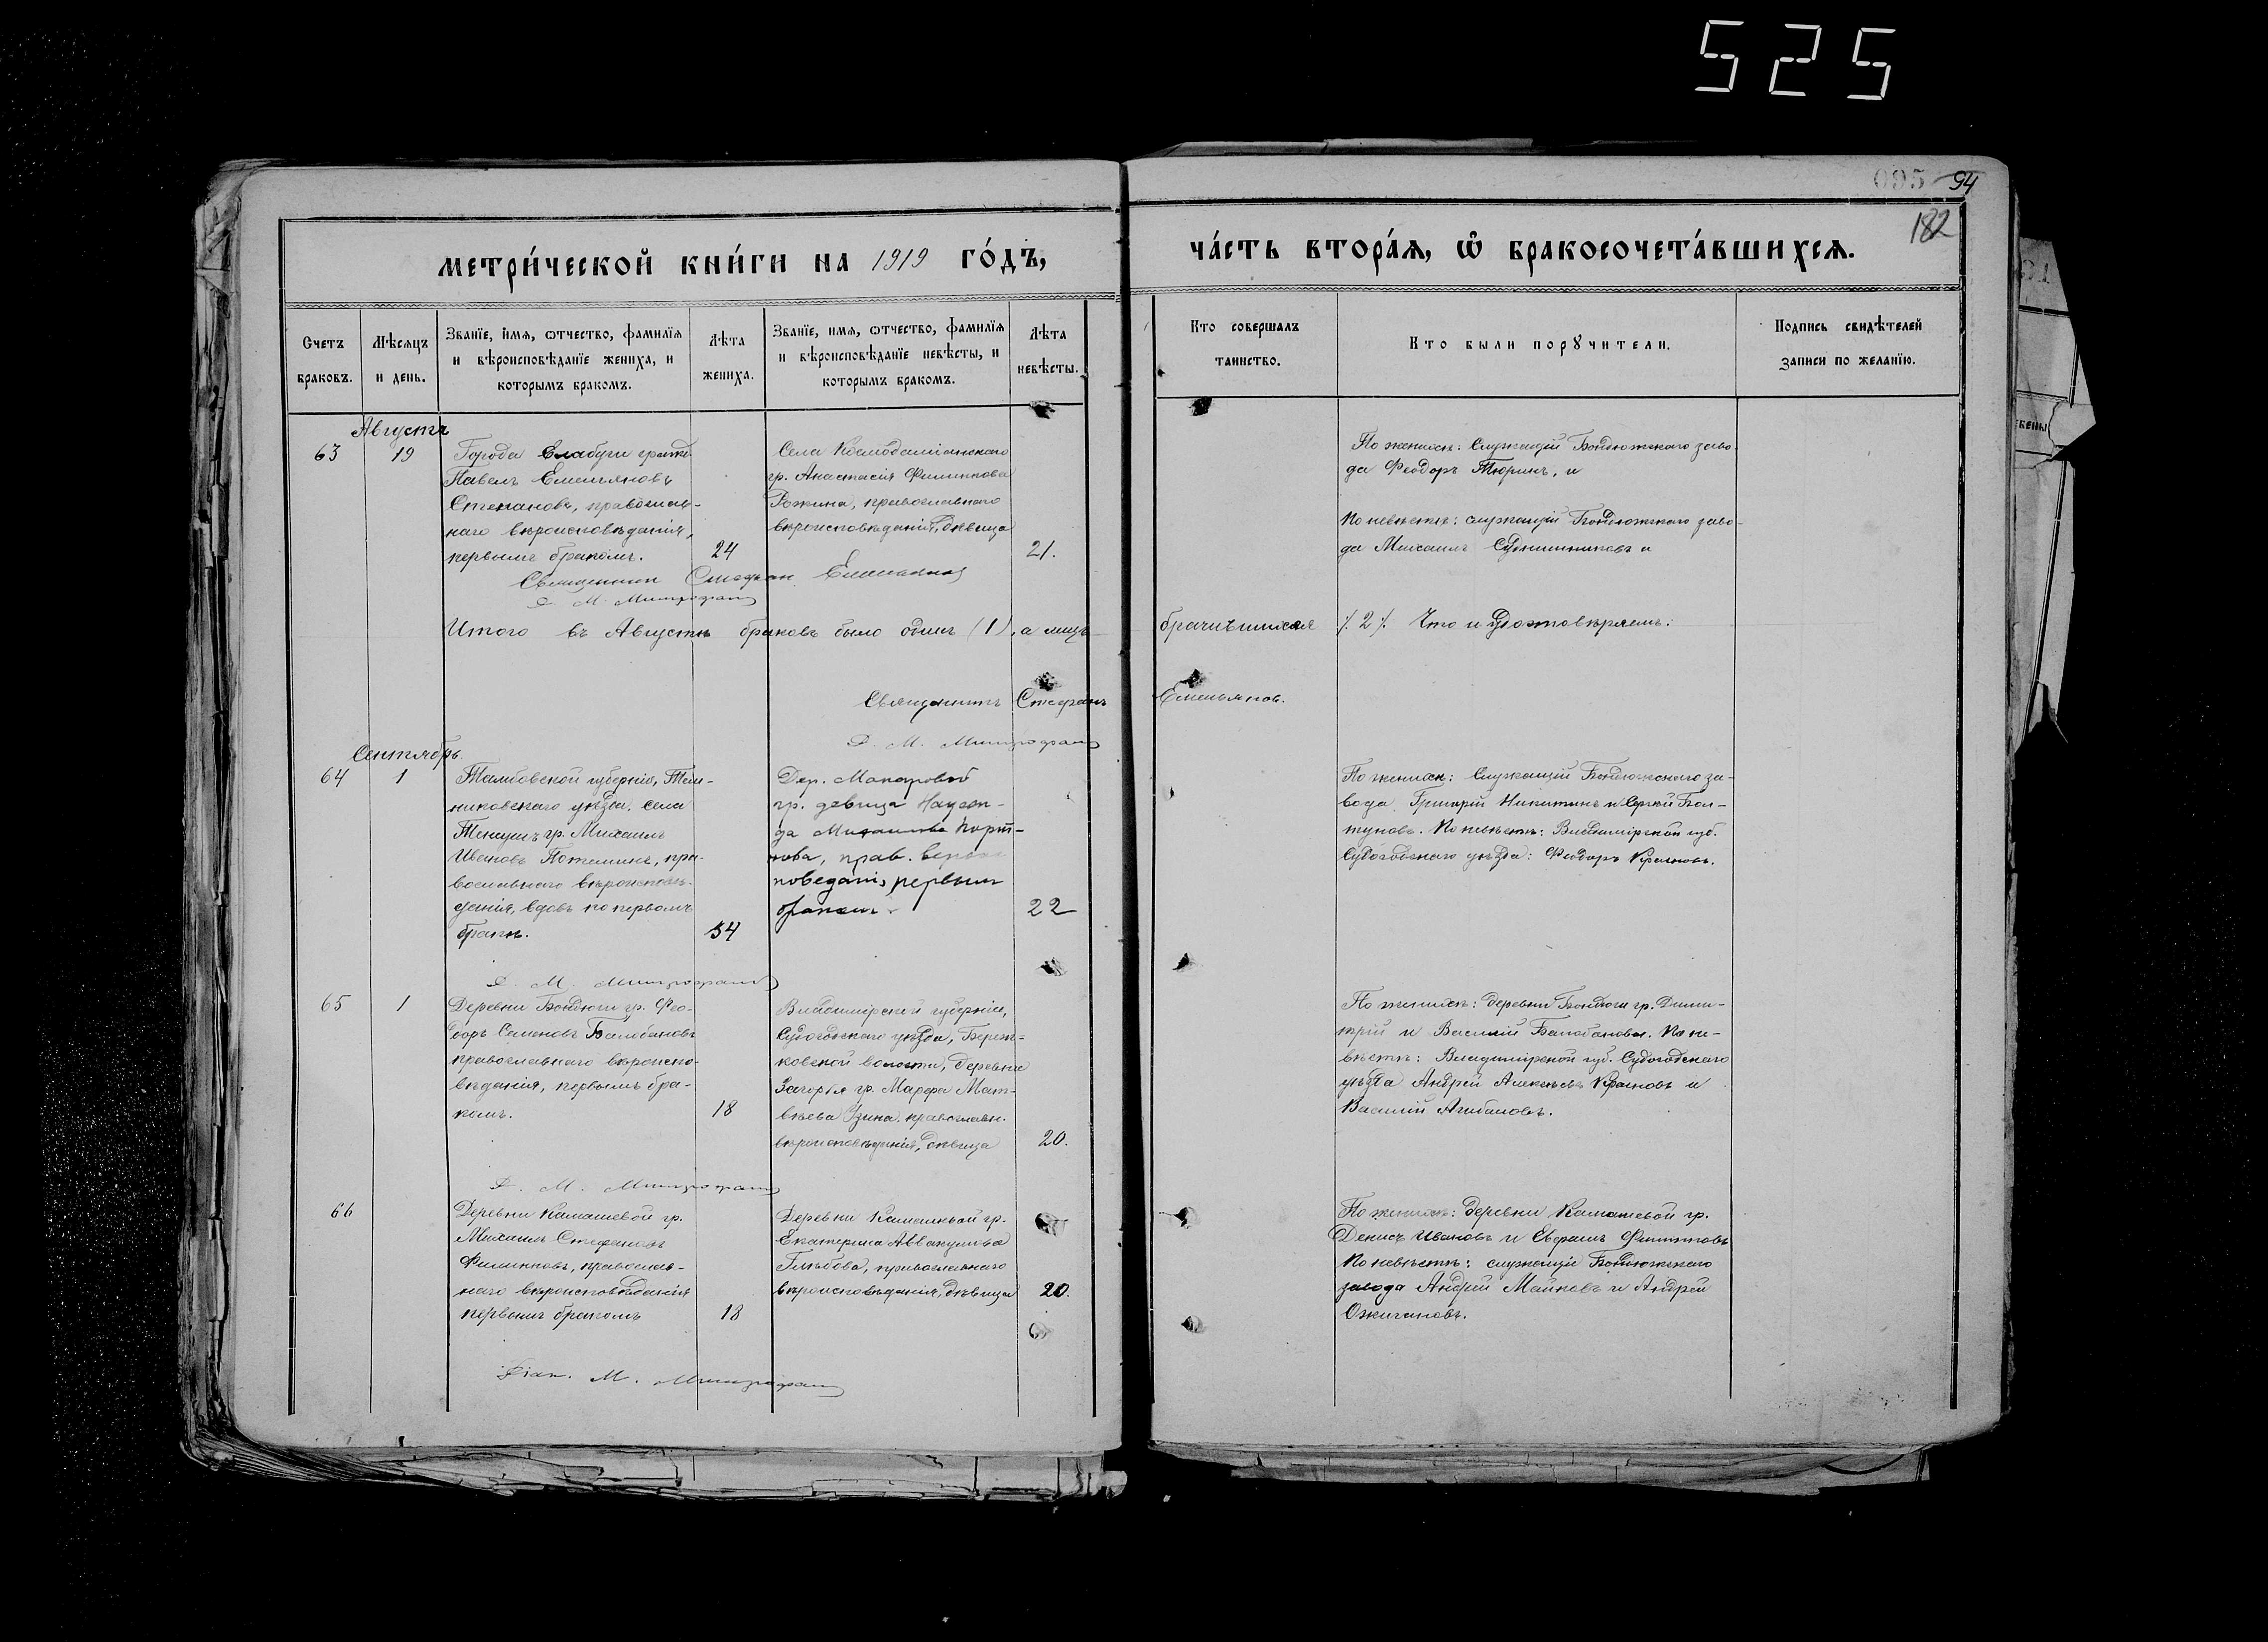 525
095 94
182
МЕТРИ́ЧЕСКОЙ КНИ́ГИ НА 1919 ГО́ДЪ,
ЧА́СТЬ ВТОРА́Я, Ѡ БРАКОСОЧЕТА́ВШИХСЯ.
Счетъ браковъ.
Мѣсяцъ и день.
Званїе, имя, ѿтчество, фамилїя
и вѣроисповѣданїе жениха, и
которымъ бракомъ.
Лѣта жениха.
Званїе, имя, ѿтчество, фамилїя
и вѣроисповѣданїе невѣсты, и
которымъ бракомъ.
Лѣта невѣсты.
Кто совершалъ
таинство.
Кто были порꙋчители.
Подпись свидѣтелей
записи по желанїю.
Августъ
63 19
Города Елабуги гражд.
Павелъ Емельяновъ
Степановъ, православ-
наго вѣроисповѣданія,
первымъ бракомъ.
24
Села Космодаміанскаго
гр. Анастасія Филиппова
Рожина, православнаго
вѣроисповѣданія, дѣвица
21.
По женихѣ: Служащій Бондюжскаго заво-
да Феодоръ Тюринъ, и
По невѣстѣ: служащій Бондюжскаго заво-
да Михаилъ и
Священникъ Стефан Емельянов
Д. М. Митрофанов
Итого въ Августѣ браковъ было одинъ (1), а лицъ
брачившихся /. 2 /. Что и удостовѣряемъ.
Священникъ Стефанъ
Емельянов.
Д. М. Митрофанов
Сентябрь.
64 1
Тамбовской губерніи, Тем-
никовскаго уѣзда, села
Теньгушъ гр. Михаилъ
Ивановъ Потемкинъ, пра-
вославнаго вѣроисповѣ-
данія, вдовъ по первомъ
бракѣ.
54
Дер. Макаровой
гр. девица Надеж-
да
нова, прав. веро
поведания, первым
браком.
22
По женихѣ: Служащій Бондюжскаго за-
вода Григорій Никитинъ и Сергѣй Бол-
туновъ. По невѣстѣ: Владимірской губ.
Судогодскаго уѣзда: Феодоръ Красновъ.
Д. М. Митрофанов
65 1
Деревни Бондюги гр. Фео-
доръ Семеновъ Балобановъ
православнаго вѣроиспо-
вѣданія, первымъ бра-
комъ.
18
Владимірской губерніи,
Судогодскаго уѣзда, Береж-
ковской волости, деревни
Загорья гр. Марфа Мат-
вѣева Узина, православн.
вѣроисповѣданія, дѣвица
20.
По женихѣ: деревни Бондюги гр. Дими-
трій и Василій Балобановы. По не-
вѣстѣ: Владимірской губ. Судогодскаго
уѣзда Андрей Алексѣевъ Красновъ и
Василій Агибаловъ.
Д. М. Митрофанов
66
Деревни Камашевой гр.
Михаилъ Стефановъ
Филипповъ, православ-
наго вѣроисповѣданія
первымъ бракомъ
18
Деревни Камашевой гр.
Екатерина Аввакумова
Глѣбова, православнаго
вѣроисповѣданія, дѣвица
20.
По женихѣ: деревни Камашевой гр.
Денисъ Ивановъ и Ефремъ Филипповъ
По невѣстѣ: служащіе Бондюжскаго
завода Андрей Майковъ и Андрей
Ожигановъ.
Діак. М. Митрофанов